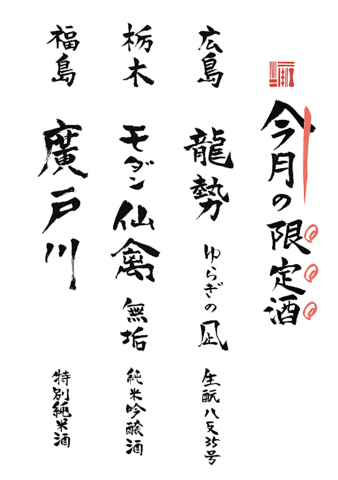 今月の限定酒
広島 龍勢 ゆらぎの凪 生酛八反35号
栃木 モダン仙禽 無垢 純米吟醸酒
福島 廣戸川 特別純米酒